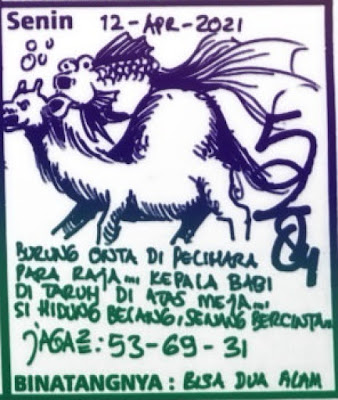 Senin 12-APR-2021
BURUNG ONTA DI PELIHARA
PARA RAJA... KEPALA BABI
DI TARUH DI ATAS MEJA...
SI HIDUNG BELANG, SENANG BERCINTA...
JAGA2: 53-69-31
BINATANGNYA : BISA DUA ALAM